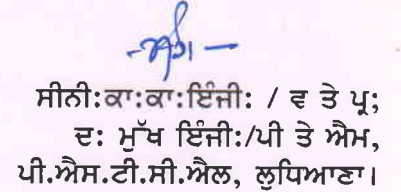 ਸੀਨੀ:ਕਾ:ਕਾ:ਇੰਜੀ: / ਵ ਤੇ ਪ੍ਰ;
ਦ: ਮੁੱਖ ਇੰਜੀ:/ਪੀ ਤੇ ਐਮ,
ਪੀ.ਐਸ.ਟੀ.ਸੀ.ਐਲ, ਲੁਧਿਆਣਾ।